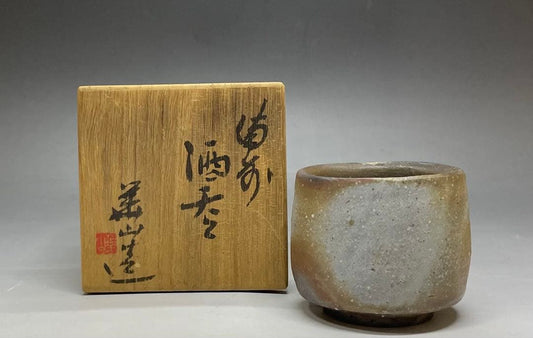 備前
酒呑
華山造